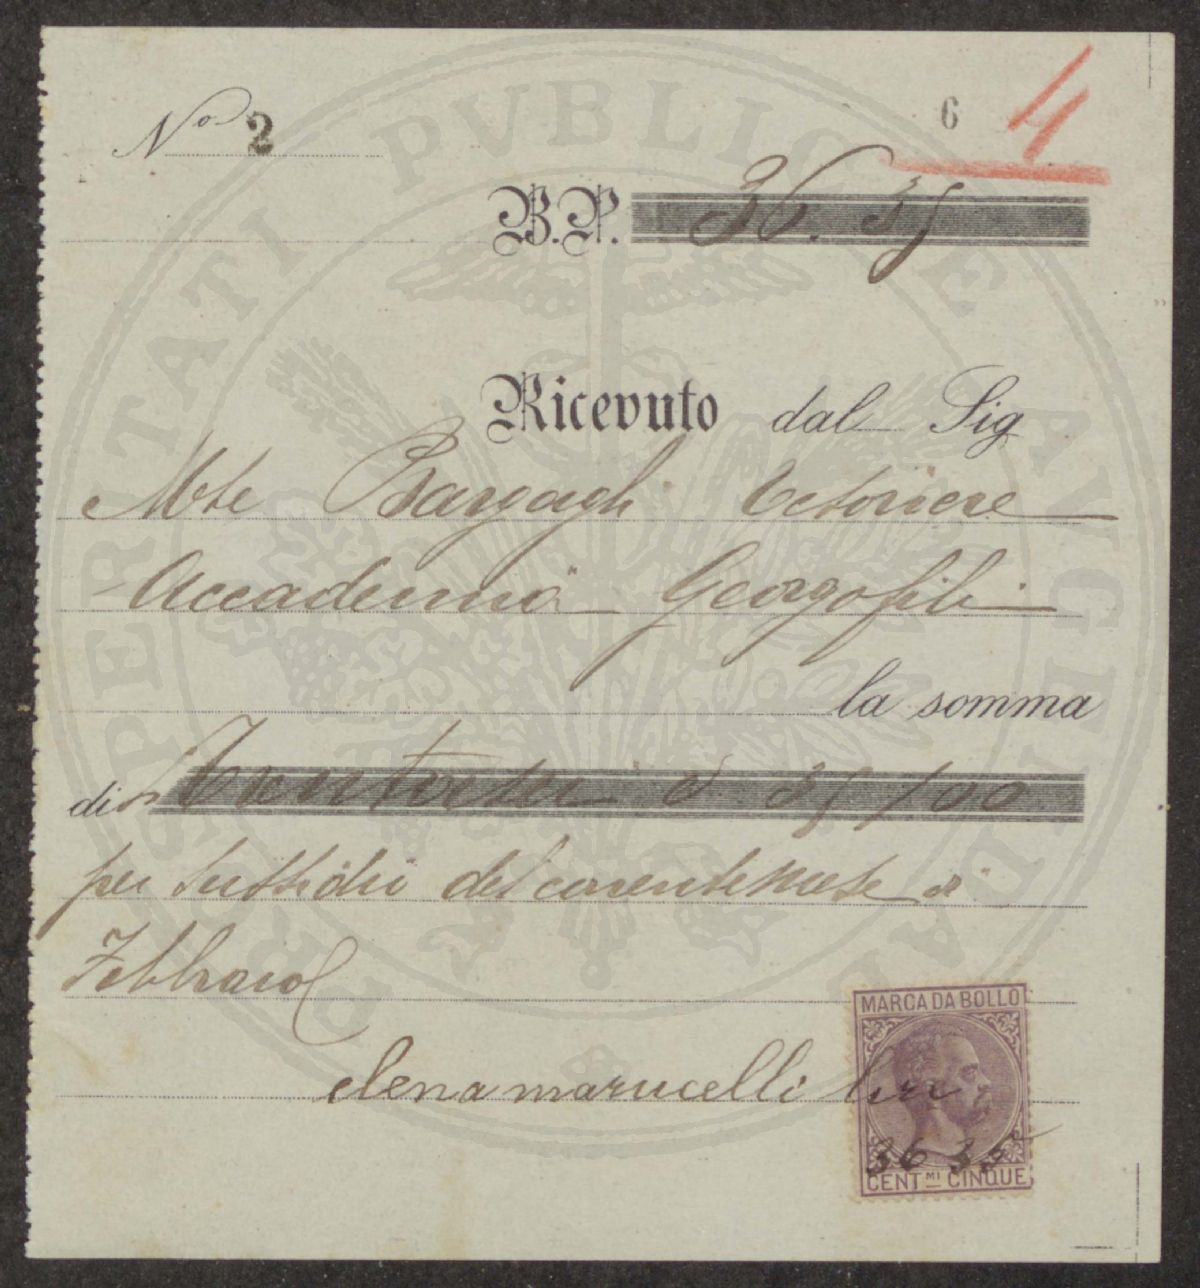 6 4
No 2
B.P. 36. 35
Ricevuto dal Sig
Mse Bargagli Tesoriere
Accademia Georgofili
la somma
di Trentasei e 35/00
per sussidii del corrente mese di
Febbraio
MARCA DA BOLLO
elena marucelli lire
36 35
CENT.MI CINQUE
PROSPERITATI PVBLICAE AVGENDAE